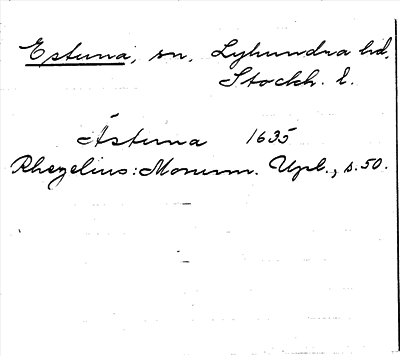 Estuna, sn, Lyhundra hd,
Stockh. l.
Åstuna 1635
Rhezelius: Monum. Upl., s. 50.